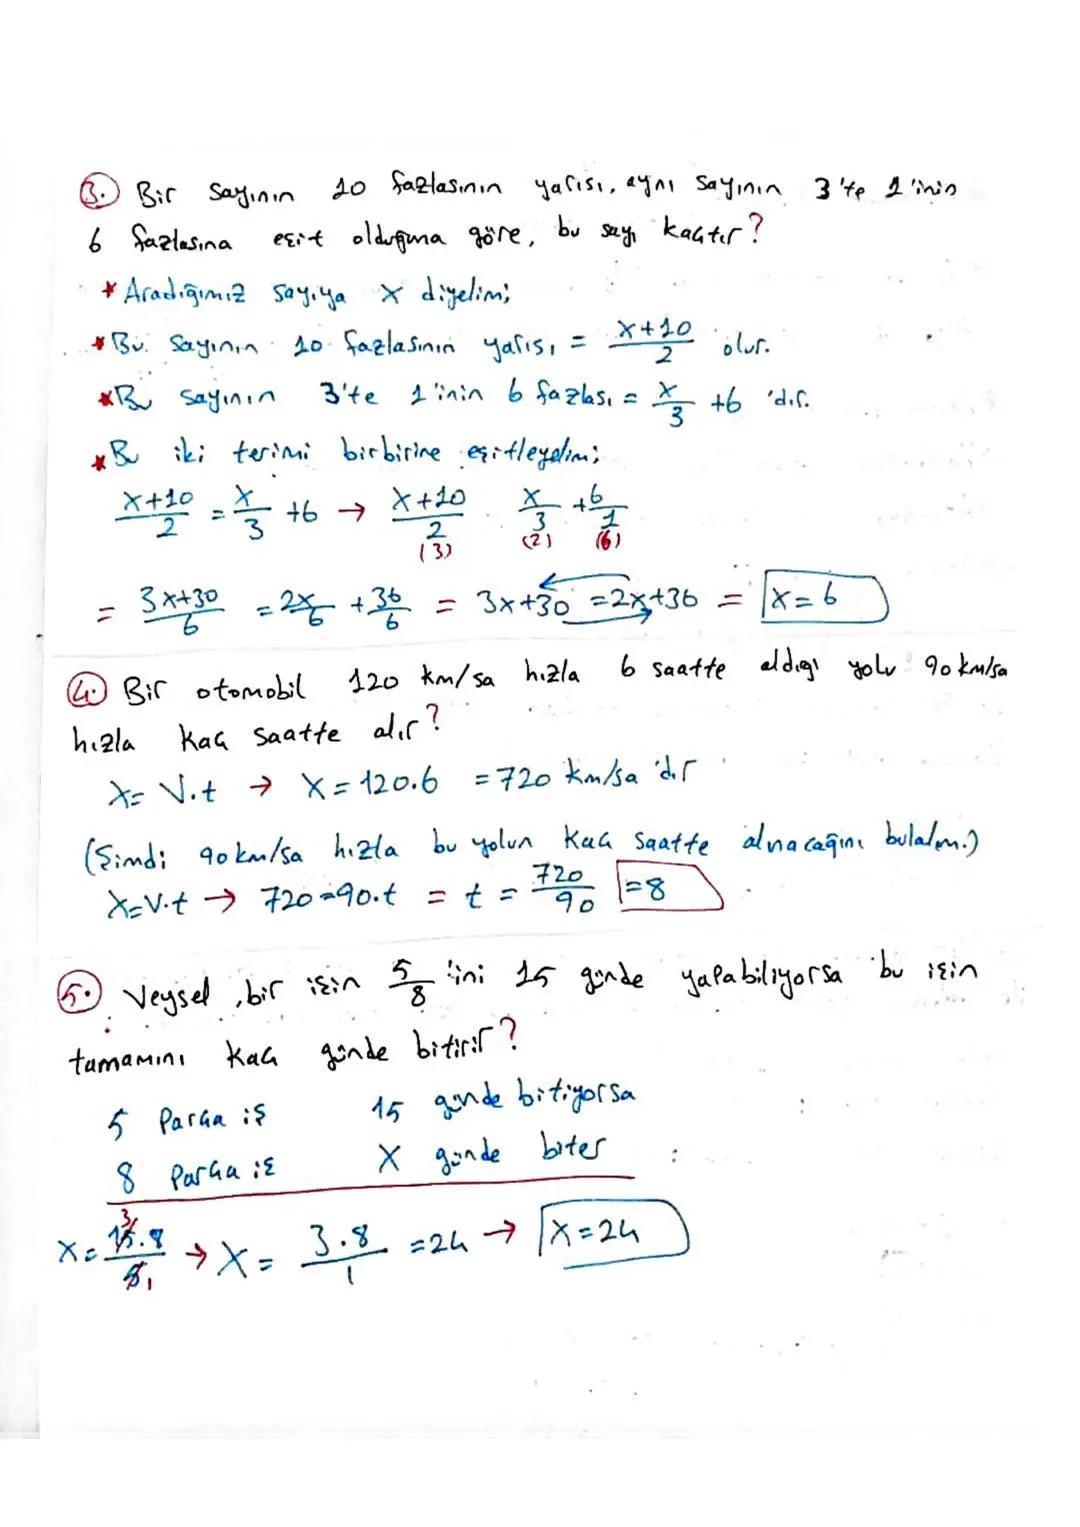 3. Bir sayının 10 fazlasının yarısı, aynı sayının 3'te 1'inin
6 fazlasına eşit olduğuna göre, bu sayı kaçtır?
* Aradığımız sayıya x diyelim;
* Bu sayının 10 fazlasının yarısı = x+10/2 olur.
* Bu sayının 3'te 1'inin 6 fazlası = x/3 +6 'dır.
* Bu iki terimi birbirine eşitleyelim;
x+10/2 = x/3 +6 → x+10/2 (3) x/3 (2) +6/1 (6)
= 3x+30/6 = 2x/6 + 36/6 = 3x+30 = 2x+36 = x=6
4. Bir otomobil 120 km/sa hızla 6 saatte aldığı yolu 90 km/sa
hızla kaç saatte alır?
X= V.t → X = 120.6 = 720 km/sa 'dır
(Şimdi 90 km/sa hızla bu yolun kaç saatte alınacağını bulalım.)
X=V.t → 720=90.t = t = 720/90 =8
5. Veysel, bir işin 5/8 'ini 15 günde yapabiliyorsa bu işin
tamamını kaç günde bitirir?
5 Parça iş 15 günde bitiyorsa
8 Parça iş X günde biter
X= 15.8/5 3 1 → X = 3.8/1 =24 → X=24